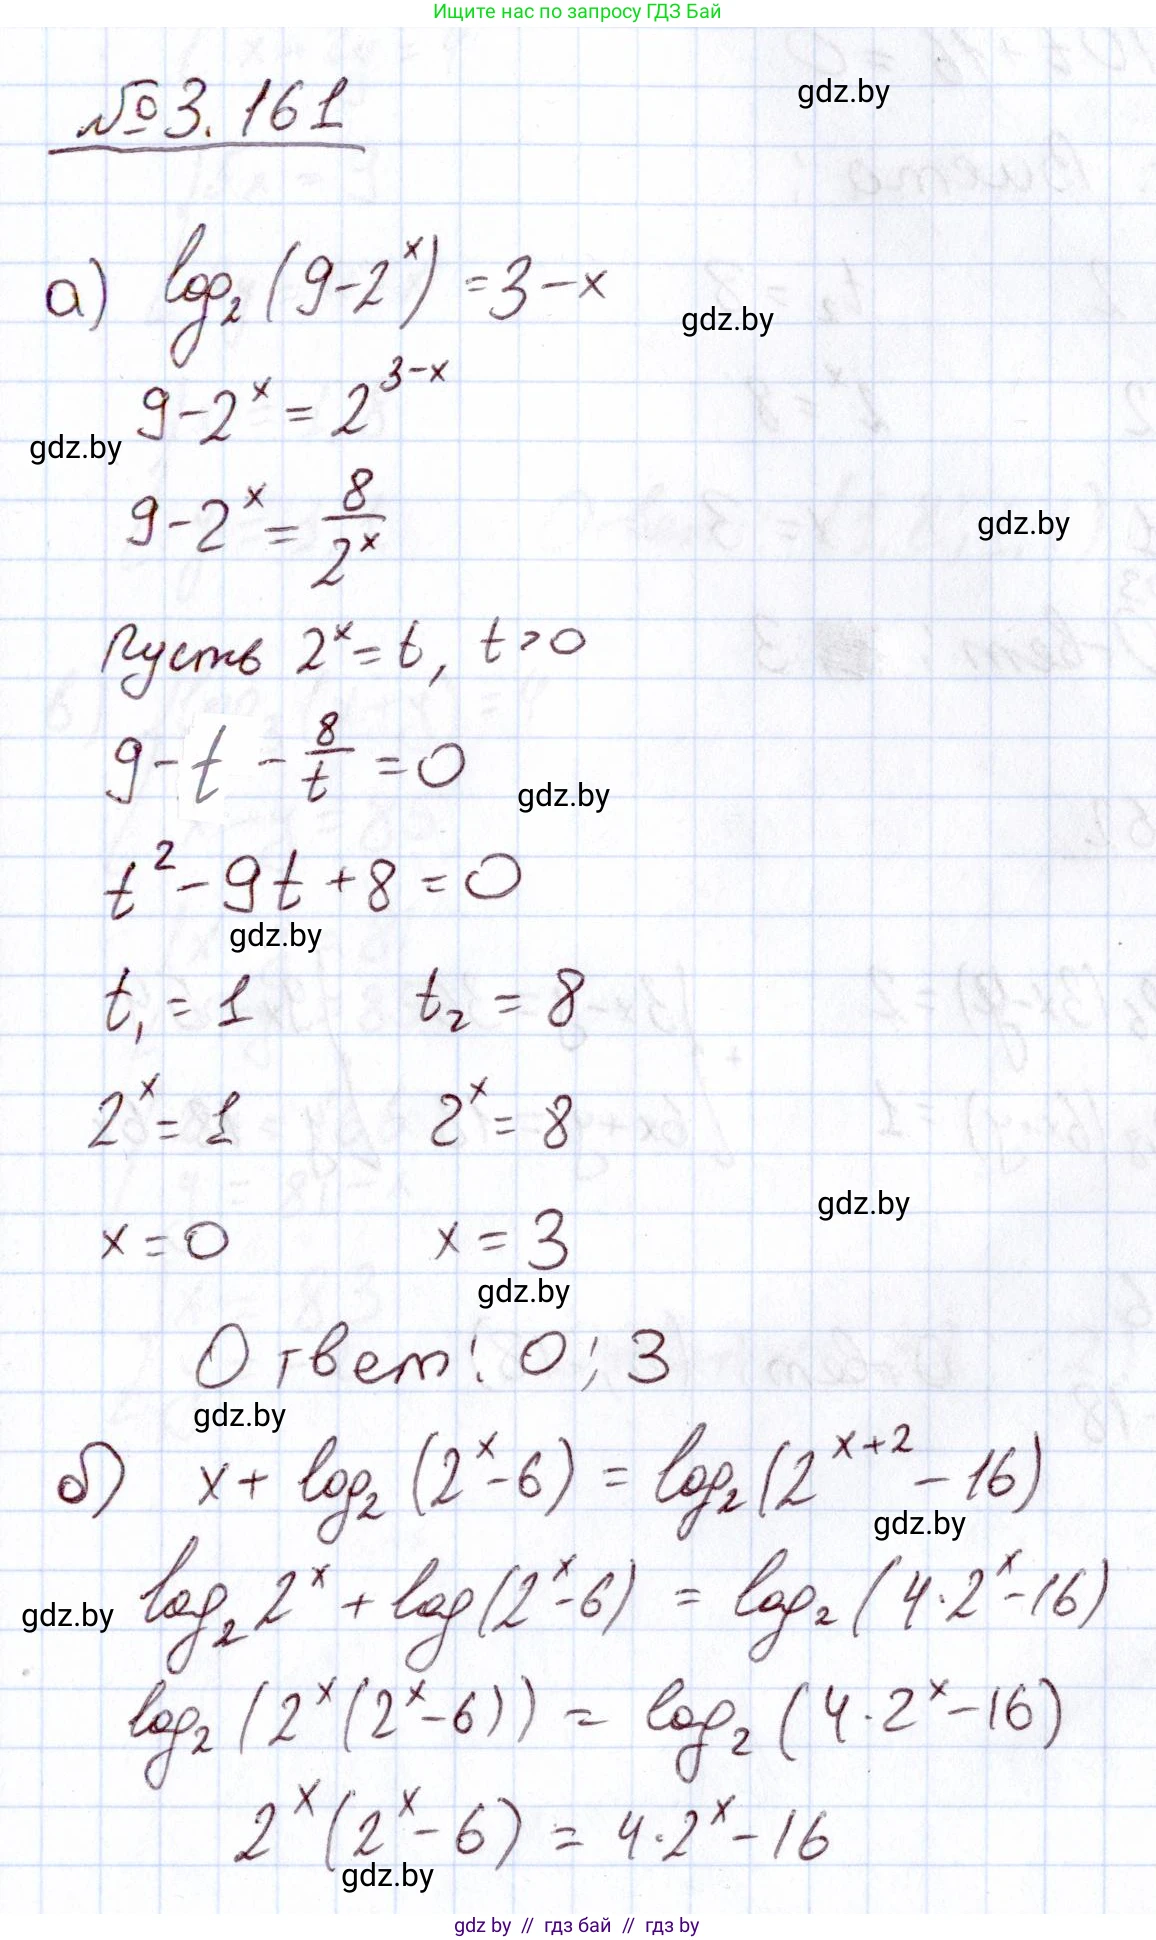 Ищите нас по запросу ГДЗ Бай
№3.161
gdz.by
а) log₂(9-2ˣ) = 3-x
gdz.by
9-2ˣ = 2³⁻ˣ
gdz.by
9-2ˣ = 8/2ˣ
gdz.by
Пусть 2ˣ = t, t>0
9-t - 8/t = 0
gdz.by
t² - 9t + 8 = 0
gdz.by
t₁ = 1 t₂ = 8
2ˣ = 1 2ˣ = 8
gdz.by
x = 0 x = 3
gdz.by
Ответ: 0; 3
gdz.by
б) x + log₂(2ˣ-6) = log₂(2ˣ⁺² - 16)
gdz.by
log₂2ˣ + log(2ˣ-6) = log₂(4·2ˣ-16)
gdz.by
log₂(2ˣ(2ˣ-6)) = log₂(4·2ˣ-16)
2ˣ(2ˣ-6) = 4·2ˣ-16
gdz.by
gdz by // гдз бай // гдз by